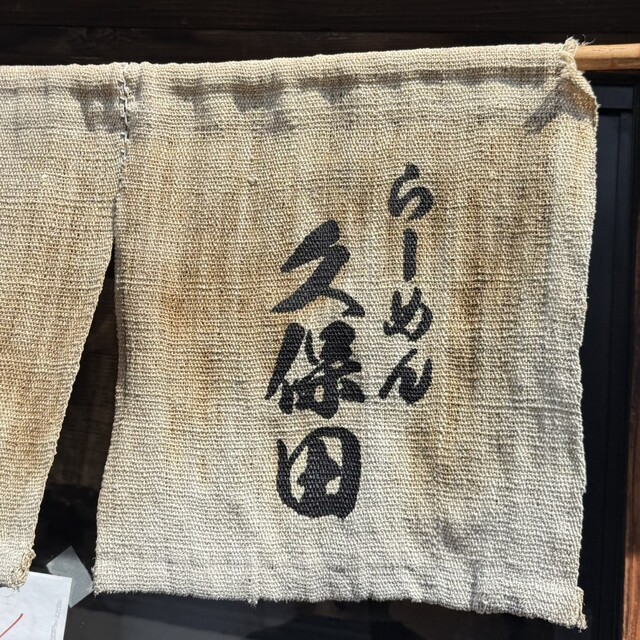 らーめん
久保田